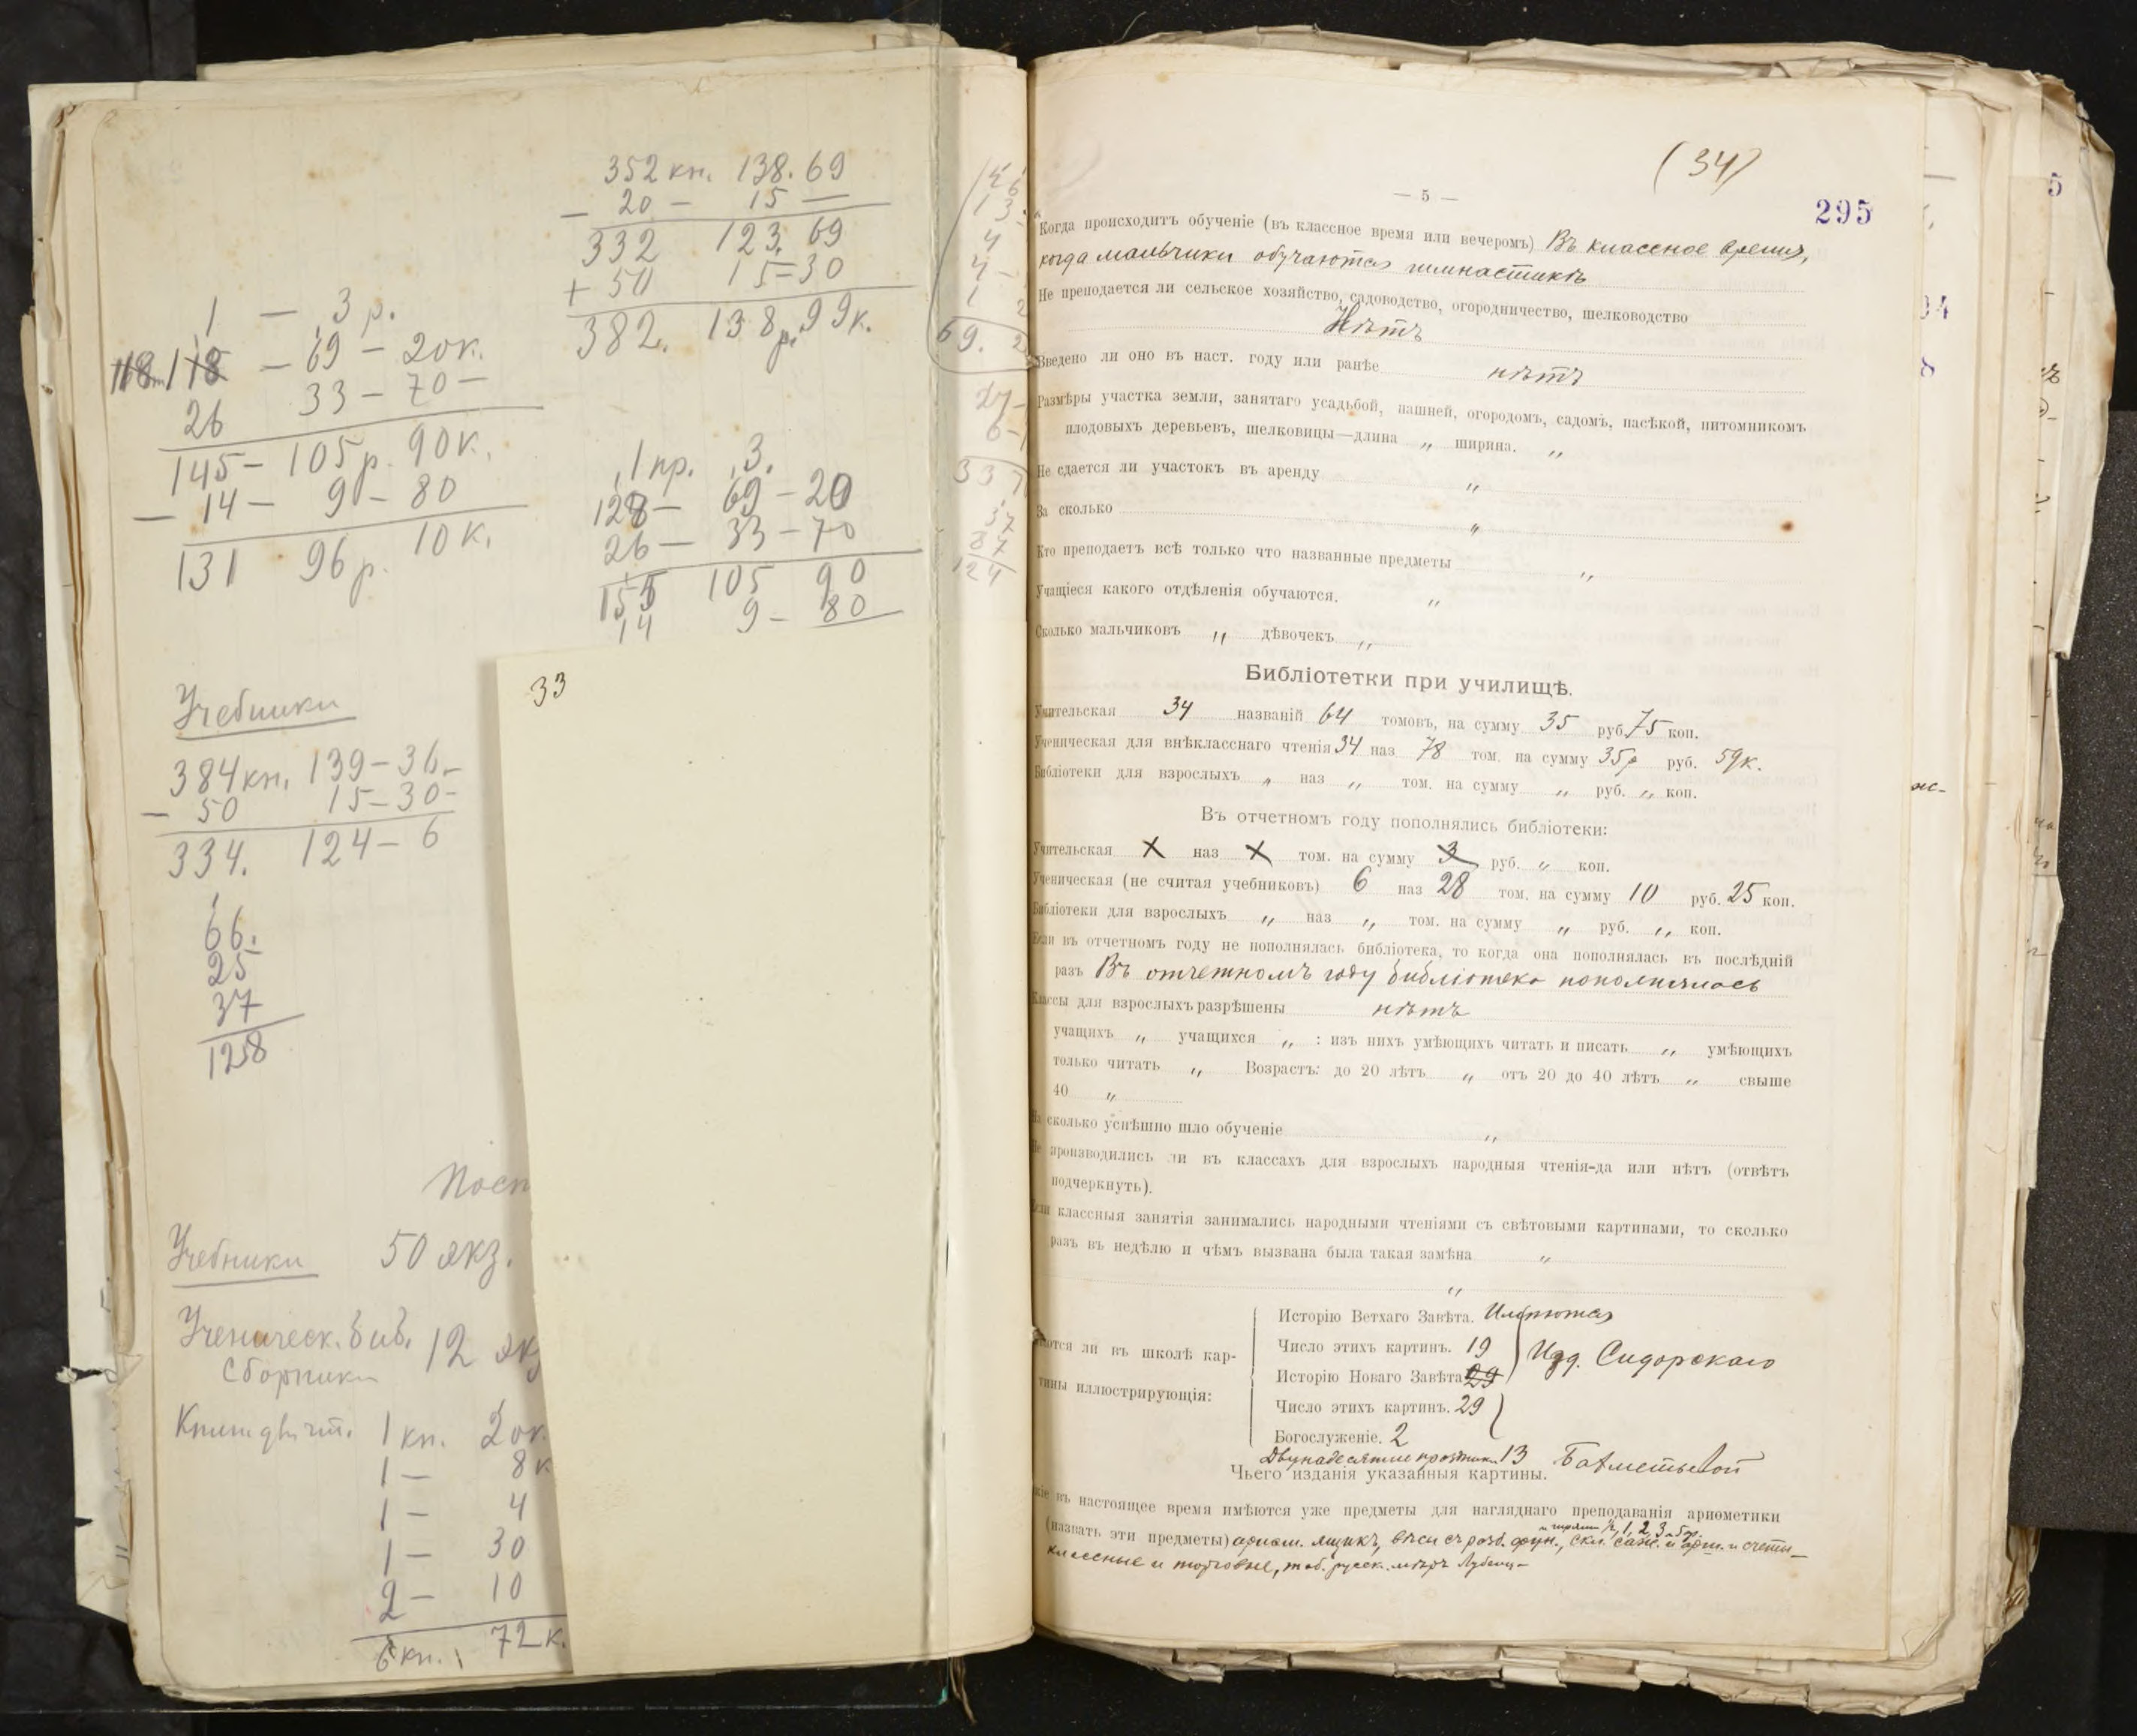 352 кн. 138. 69
— 20 — 15 —
332 123. 69
+ 50 15 = 30
382. 138 р. 99 к.
1 — 3 р.
118 — 69 — 20 к.
26 33 — 70 —
145 — 105 р. 90 к.
— 14 — 9 — 80
131 96 р. 10 к.
1 пр. 3.
128 — 69 — 20
26 — 33 — 70
155 105 90
14 9 — 80
Учебники
384 кн. 139 — 36 —
— 50 15 — 30 —
334. 124 — 6
66.
25
37
128
Учебники 50 экз.
Ученическ. биб. 12 эк
Сборники
1 кн. 20 к.
1 — 8 к
1 — 4
1 — 30
2 — 10
6 кн. 72 к.
33
(34)
295
— 5 —
Когда происходитъ обученіе (въ классное время или вечеромъ) Въ классное время,
когда мальчики обучаются гимнастикѣ
Не преподается ли сельское хозяйство, садоводство, огородничество, шелководство
Нѣтъ
Введено ли оно въ наст. году или ранѣе нѣтъ
Размѣры участка земли, занятаго усадьбой, пашней, огородомъ, садомъ, пасѣкой, питомникомъ
плодовыхъ деревьевъ, шелковицы—длина „ ширина. „
Не сдается ли участокъ въ аренду „
За сколько „
Кто преподаетъ всѣ только что названные предметы „
Учащіеся какого отдѣленія обучаются. „
Сколько мальчиковъ „ дѣвочекъ „
Библіотетки при училищѣ.
Учительская 34 названій 64 томовъ, на сумму 35 руб. 75 коп.
Ученическая для внѣкласснаго чтенія 34 наз 78 том. на сумму 35 р руб. 59 к.
Библіотеки для взрослыхъ „ наз „ том. на сумму „ руб. „ коп.
Въ отчетномъ году пополнялись библіотеки:
Учительская наз том. на сумму 3 руб. „ коп.
Ученическая (не считая учебниковъ) 6 наз 28 том. на сумму 10 руб. 25 коп.
Библіотеки для взрослыхъ „ наз „ том. на сумму „ руб. „ коп.
Если въ отчетномъ году не пополнялась библіотека, то когда она пополнялась въ послѣдній
разъ Въ отчетномъ году библіотека пополнялась
Классы для взрослыхъ разрѣшены нѣтъ
учащихъ „ учащихся „ : изъ нихъ умѣющихъ читать и писать „ умѣющихъ
только читать „ Возрастъ: до 20 лѣтъ „ отъ 20 до 40 лѣтъ „ свыше
40 „
На сколько успѣшно шло обученіе „
Не производились ли въ классахъ для взрослыхъ народныя чтенія-да или нѣтъ (отвѣтъ
подчеркнуть).
Если классныя занятія занимались народными чтеніями съ свѣтовыми картинами, то сколько
разъ въ недѣлю и чѣмъ вызвана была такая замѣна „
„
Исторію Ветхаго Завѣта. Имѣются
Число этихъ картинъ. 19
ли въ школѣ кар- Изд. Сидорскаго
Исторію Новаго Завѣта 29
тины иллюстрирующія:
Число этихъ картинъ. 29
Богослуженіе. 2
Двунадесятые праздники 13
Чьего изданія указанныя картины.
въ настоящее время имѣются уже предметы для нагляднаго преподаванія ариөметики
и гирями 1, 2, 3
(назвать эти предметы) ариөм. ящикъ, вѣсы съ фун., скл. саж. и арш. и счеты
классные и торговые, таб. русск. мѣръ